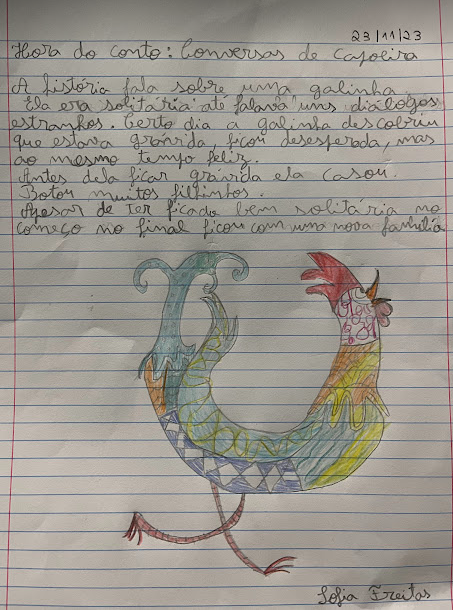 23/11/23
Hora do conto: Conversas de Capoeira
A história fala sobre uma galinha.
Ela era solitária até falava uns diálogos
estranhos. Certo dia a galinha descobriu
que estava grávida, ficou desesperada, mas
ao mesmo tempo feliz.
Antes dela ficar grávida ela casou.
Botou muitos filhinhos.
Apesar de ter ficado bem solitária no
começo no final ficou com uma nova família
Sofia Freitas